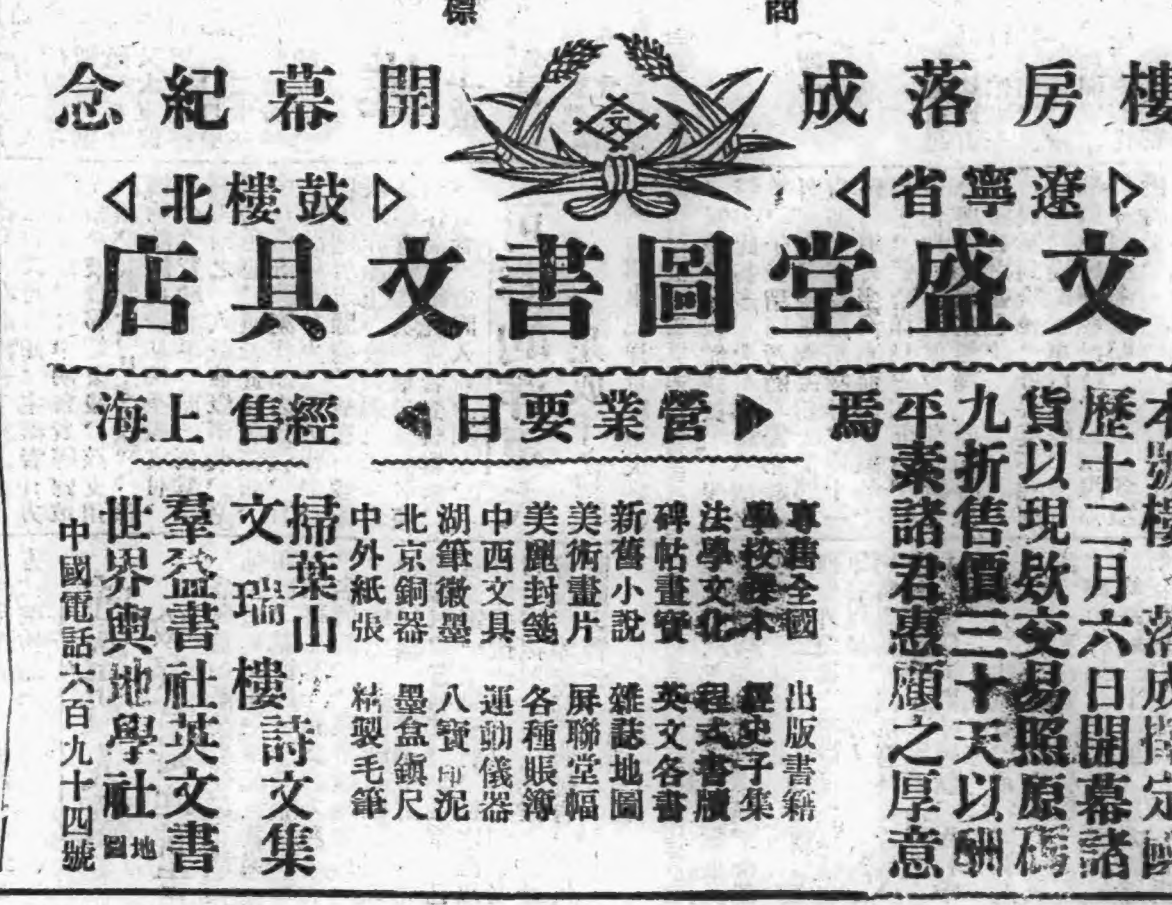 商標
樓房落成
開幕紀念
文
遼寧省
鼓樓北
文盛堂圖書文具店
本號樓 落成擇定國
歷十二月六日開幕諸
貨以現欵交易照原碼
九折售價三十天以酬
平素諸君惠顧之厚意
焉
營業要目
專售全國出版書籍
學校課本經史子集
法學文化程式書牘
碑帖畫寶英文各書
新舊小說雜誌地圖
美術畫片屏聯堂幅
美麗封箋各種賬簿
中西文具運動儀器
湖筆徽墨八寶印泥
北京銅器墨盒鎮尺
中外紙張精製毛筆
經售上海
掃葉山
文瑞樓
詩文集
羣益書社英文書
世界輿地學社地圖
中國電話六百九十四號